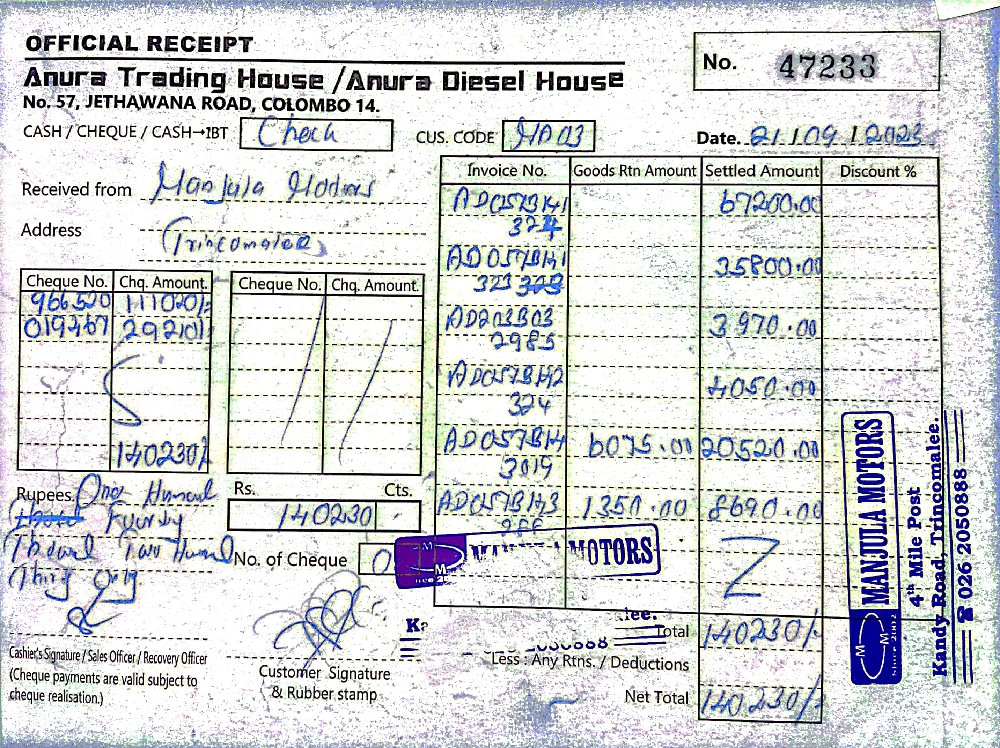 OFFICIAL RECEIPT
Anura Trading House / Anura Diesel House
No. 57, JETHAWANA ROAD, COLOMBO 14.
No. 47233
CASH / CHEQUE / CASH→IBT Check
CUS. CODE MA03
Date. 21/09/2023
Received from Manjula Motors
Address Trincomalee
Invoice No. Goods Rtn Amount Settled Amount Discount %
AD057B141 67200.00
324
AD057B141 35800.00
323
AD203B03 3970.00
2985
AD057B142 4050.00
324
AD057B14 6075.00 20520.00
3019
AD057B143 1350.00 8690.00
966
Cheque No. Chq. Amount Cheque No. Chq. Amount
966520 111020/-
019467 29210/-
140230/-
Rupees. One
Two
Only
Rs. Cts.
140230 -
No. of Cheque 0
MANJULA MOTORS
Total 140230/-
Less : Any Rtns. / Deductions
Net Total 140230/-
Cashier's Signature / Sales Officer / Recovery Officer
(Cheque payments are valid subject to
cheque realisation.)
Customer Signature
& Rubber stamp
MANJULA MOTORS
4th Mile Post
Kandy Road, Trincomalee.
☎ 026 2050888